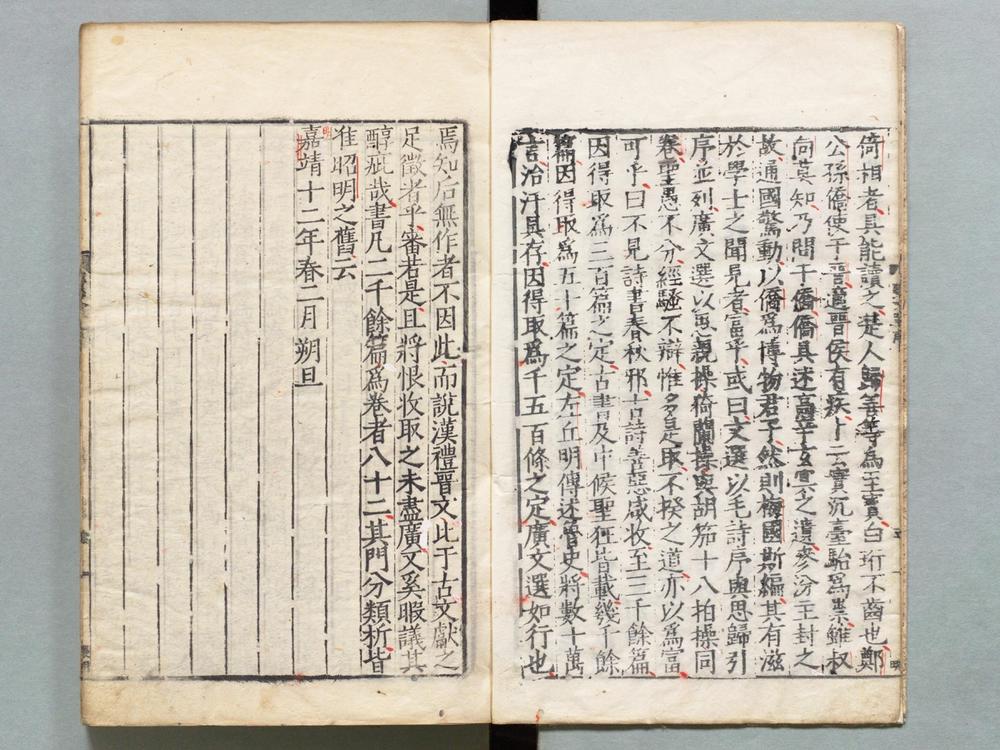 倚相者具能讀之楚人歸善等為至寶白珩不齒也鄭
公孫僑使于晉適晉侯有疾卜云實沉臺駘為祟雖叔
向莫知乃問于僑僑具述高辛玄冥之遺參汾主封之
故通國驚動以僑為博物君子然則梅國斯編其有滋
於學士之聞見者富乎或曰文選以毛詩序與思歸引
序並列廣文選以思親操猗蘭操與胡笳十八拍操同
聖愚不分經騷不辯惟多是取不揆之道亦以為富
可乎曰不見詩書春秋邪古詩善惡咸收至三千餘篇
因得取為三百篇之定古書及中候聖狂皆載幾千餘
篇因得取為五十篇之定左丘明傳述魯史將數十萬
言洽汗具存因得取為千五百條之定廣文選如行也
焉知后無作者不因此而說漢禮晉文此于古文獻之
足徵者乎審若是且將恨收取之未盡廣文奚暇議其
醇疵哉書凡二千餘篇為卷者八十二其門分類析皆
准昭明之舊云
嘉靖十二年春二月朔旦